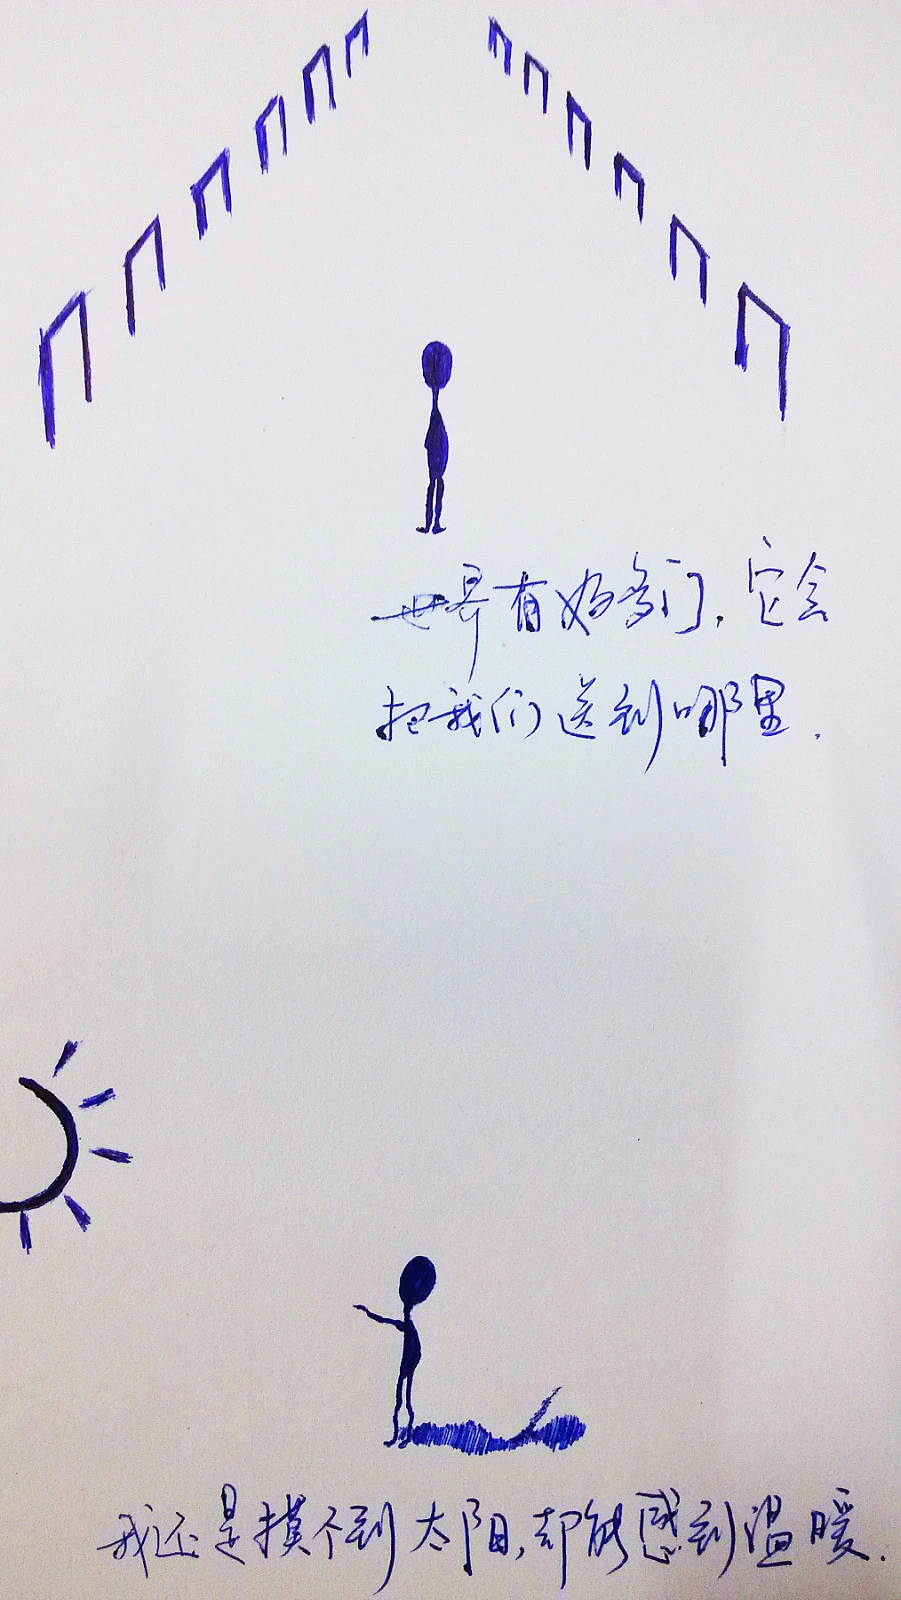 世界有好多门，它会
把我们送到哪里．
我还是摸不到太阳，却能感到温暖．